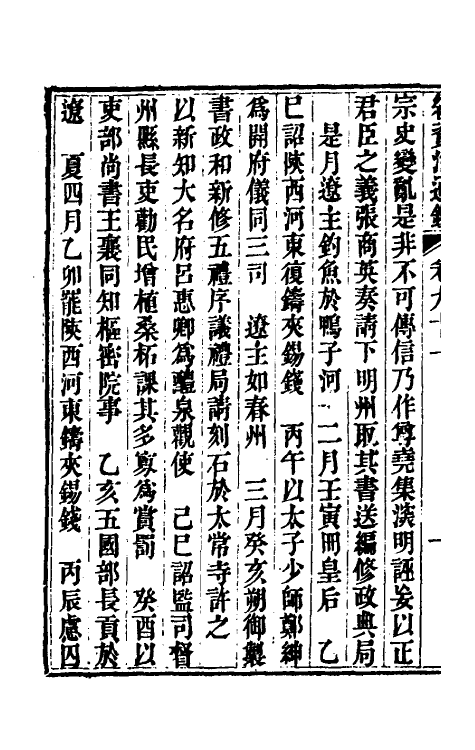 續資治通鑑 卷九十一 一
宗史變亂是非不可傳信乃作尊堯集演明誣妄以正
君臣之義張商英奏請下明州取其書送編修政典局
是月遼主釣魚於鴨子河 二月壬寅冊皇后 乙
巳詔陝西河東復鑄夾錫錢 丙午以太子少師鄭紳
爲開府儀同三司 遼主如春州 三月癸亥朔御製
書政和新修五禮序議禮局請刻石於太常寺許之
以新知大名府呂惠卿爲醴泉觀使 己巳詔監司督
州縣長吏勸民增植桑柘課其多寡爲賞罰 癸酉以
吏部尚書王襄同知樞密院事 乙亥五國部長貢於
遼 夏四月乙卯罷陝西河東鑄夾錫錢 丙辰慮囚